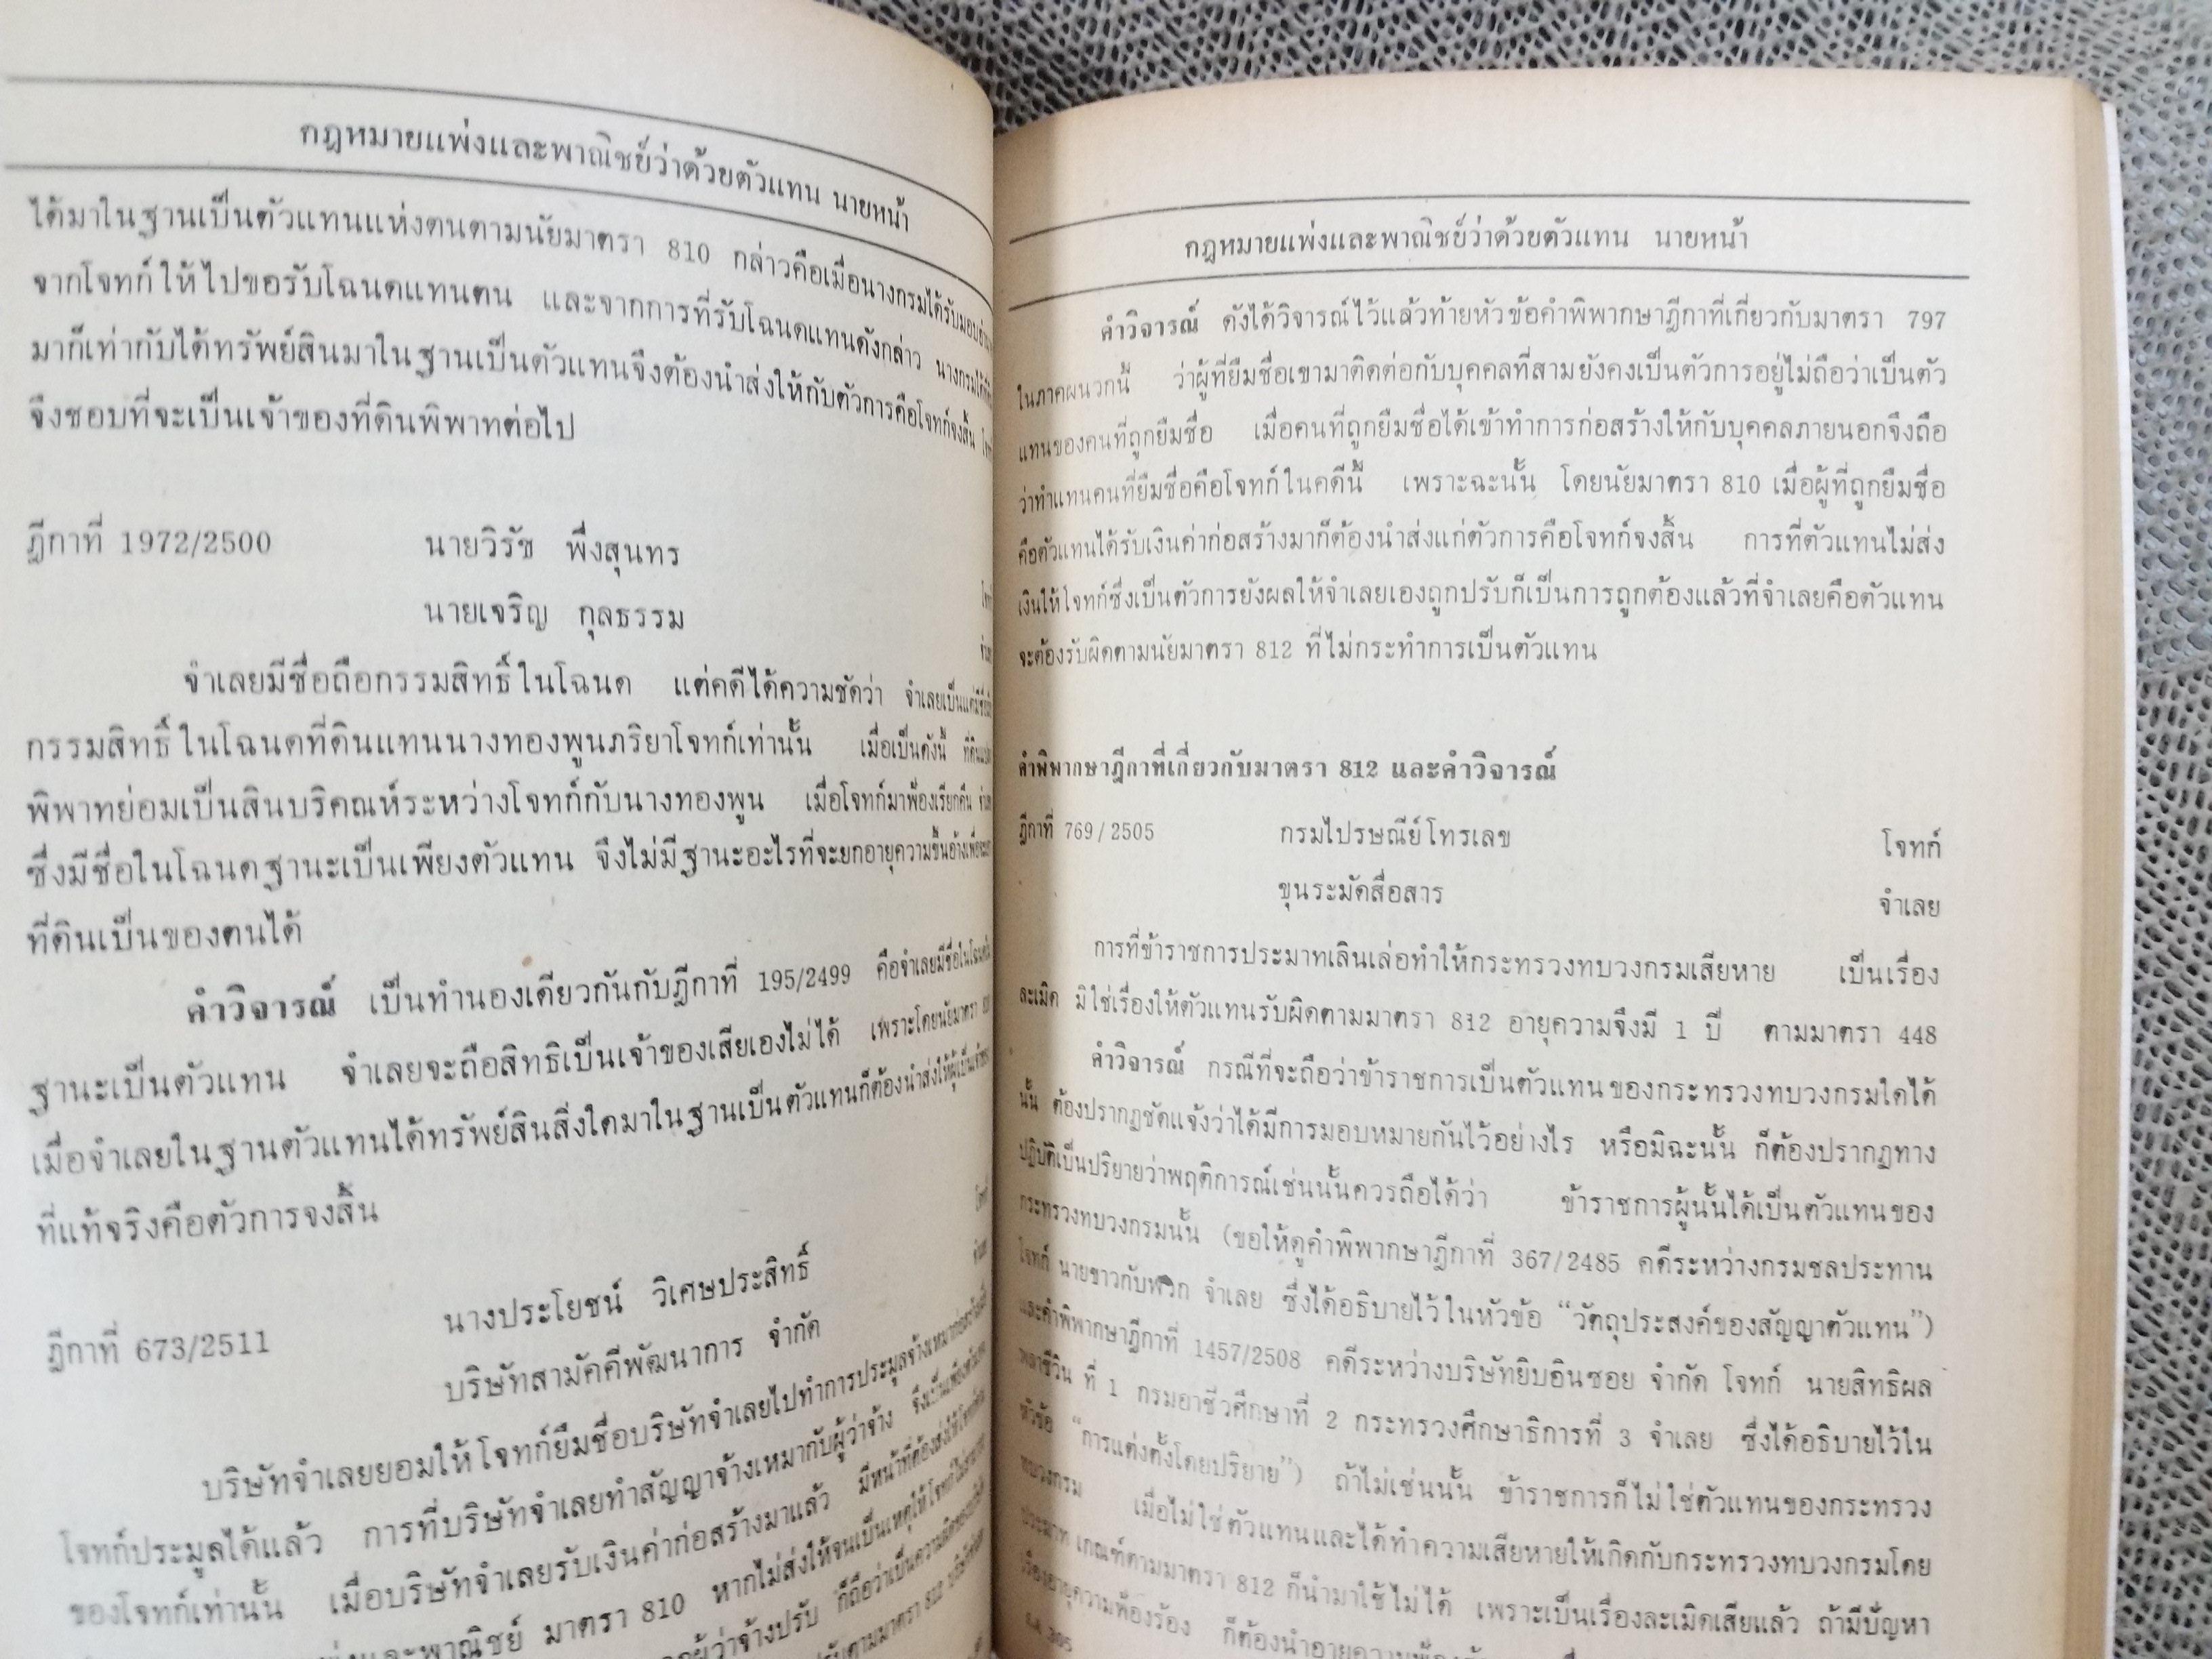 กฎหมายแพ่งและพาณิชย์ว่าด้วยตัวแทน นายหน้า
ได้มาในฐานเป็นตัวแทนแห่งตนตามนัยมาตรา 810 กล่าวคือเมื่อนางกรมได้รับมอบอำนาจ
จากโจทก์ให้ไปขอรับโฉนดแทนตน และจากการที่รับโฉนดแทนดังกล่าว นางกรมได้ที่ดิน
มาก็เท่ากับได้ทรัพย์สินมาในฐานเป็นตัวแทนจึงต้องนำส่งให้กับตัวการคือโจทก์จงสิ้น
จึงชอบที่จะเป็นเจ้าของที่ดินพิพาทต่อไป
ฎีกาที่ 1972/2500 นายวิรัช พึ่งสุนทร
นายเจริญ กุลธรรม
จำเลยมีชื่อถือกรรมสิทธิ์ในโฉนด แต่คดีได้ความชัดว่า จำเลยเป็นแต่มีชื่อถือ
กรรมสิทธิ์ในโฉนดที่ดินแทนนางทองพูนภริยาโจทก์เท่านั้น เมื่อเป็นดังนี้
พิพาทย่อมเป็นสินบริคณห์ระหว่างโจทก์กับนางทองพูน เมื่อโจทก์มาฟ้องเรียกคืน
ซึ่งมีชื่อในโฉนดฐานะเป็นเพียงตัวแทน จึงไม่มีฐานะอะไรที่จะยกอายุความขึ้นอ้างเพื่อ
ที่ดินเป็นของตนได้
คำวิจารณ์ เป็นทำนองเดียวกันกับฎีกาที่ 195/2499 คือจำเลยมีชื่อในโฉนด
ฐานะเป็นตัวแทน จำเลยจะถือสิทธิเป็นเจ้าของเสียเองไม่ได้ เพราะโดยนัยมาตรา 810
เมื่อจำเลยในฐานตัวแทนได้ทรัพย์สินสิ่งใดมาในฐานเป็นตัวแทนก็ต้องนำส่งให้ผู้เป็นเจ้าของ
ที่แท้จริงคือตัวการจงสิ้น
ฎีกาที่ 673/2511 นางประโยชน์ วิเศษประสิทธิ์
บริษัทสามัคคีพัฒนาการ จำกัด
บริษัทจำเลยยอมให้โจทก์ยืมชื่อบริษัทจำเลยไปทำการประมูลจ้างเหมาก่อสร้าง
โจทก์ประมูลได้แล้ว การที่บริษัทจำเลยทำสัญญาจ้างเหมากับผู้ว่าจ้าง
ของโจทก์เท่านั้น เมื่อบริษัทจำเลยรับเงินค่าก่อสร้างมาแล้ว มีหน้าที่ต้องส่งให้โจทก์
และพาณิชย์ มาตรา 810 หากไม่ส่งให้จนเป็นเหตุให้โจทก์
ผู้ว่าจ้างปรับ ก็ถือว่าเป็นความผิดของ
ตามมาตรา 812
กฎหมายแพ่งและพาณิชย์ว่าด้วยตัวแทน นายหน้า
คำวิจารณ์ ดังได้วิจารณ์ไว้แล้วท้ายหัวข้อคำพิพากษาฎีกาที่เกี่ยวกับมาตรา 797
ในภาคผนวกนี้ ว่าผู้ที่ยืมชื่อเขามาติดต่อกับบุคคลที่สามยังคงเป็นตัวการอยู่ไม่ถือว่าเป็นตัว
แทนของคนที่ถูกยืมชื่อ เมื่อคนที่ถูกยืมชื่อได้เข้าทำการก่อสร้างให้กับบุคคลภายนอกจึงถือ
ว่าทำแทนคนที่ยืมชื่อคือโจทก์ในคดีนี้ เพราะฉะนั้น โดยนัยมาตรา 810 เมื่อผู้ที่ถูกยืมชื่อ
คือตัวแทนได้รับเงินค่าก่อสร้างมาก็ต้องนำส่งแก่ตัวการคือโจทก์จงสิ้น การที่ตัวแทนไม่ส่ง
เงินให้โจทก์ซึ่งเป็นตัวการยังผลให้จำเลยเองถูกปรับก็เป็นการถูกต้องแล้วที่จำเลยคือตัวแทน
จะต้องรับผิดตามนัยมาตรา 812 ที่ไม่กระทำการเป็นตัวแทน
คำพิพากษาฎีกาที่เกี่ยวกับมาตรา 812 และคำวิจารณ์
ฎีกาที่ 769/2505 กรมไปรษณีย์โทรเลข โจทก์
ขุนระมัดสื่อสาร จำเลย
การที่ข้าราชการประมาทเลินเล่อทำให้กระทรวงทบวงกรมเสียหาย เป็นเรื่อง
ละเมิด มิใช่เรื่องให้ตัวแทนรับผิดตามมาตรา 812 อายุความจึงมี 1 ปี ตามมาตรา 448
คำวิจารณ์ กรณีที่จะถือว่าข้าราชการเป็นตัวแทนของกระทรวงทบวงกรมใดได้
นั้น ต้องปรากฏชัดแจ้งว่าได้มีการมอบหมายกันไว้อย่างไร หรือมิฉะนั้น ก็ต้องปรากฏทาง
ปฏิบัติเป็นปริยายว่าพฤติการณ์เช่นนั้นควรถือได้ว่า ข้าราชการผู้นั้นได้เป็นตัวแทนของ
กระทรวงทบวงกรมนั้น (ขอให้ดูคำพิพากษาฎีกาที่ 367/2485 คดีระหว่างกรมชลประทาน
โจทก์ นายขาวกับพวก จำเลย ซึ่งได้อธิบายไว้ในหัวข้อ “วัตถุประสงค์ของสัญญาตัวแทน”)
และคำพิพากษาฎีกาที่ 1457/2508 คดีระหว่างบริษัทยิบอินซอย จำกัด โจทก์ นายสิทธิผล
พลาชีวิน ที่ 1 กรมอาชีวศึกษาที่ 2 กระทรวงศึกษาธิการที่ 3 จำเลย ซึ่งได้อธิบายไว้ใน
หัวข้อ “การแต่งตั้งโดยปริยาย”) ถ้าไม่เช่นนั้น ข้าราชการก็ไม่ใช่ตัวแทนของกระทรวง
ทบวงกรม เมื่อไม่ใช่ตัวแทนและได้ทำความเสียหายให้เกิดกับกระทรวงทบวงกรมโดย
ประมาท เกณฑ์ตามมาตรา 812 ก็นำมาใช้ไม่ได้ เพราะเป็นเรื่องละเมิดเสียแล้ว ถ้ามีปัญหา
เรื่องอายุความฟ้องร้อง ก็ต้องนำอายุความ
LA 305